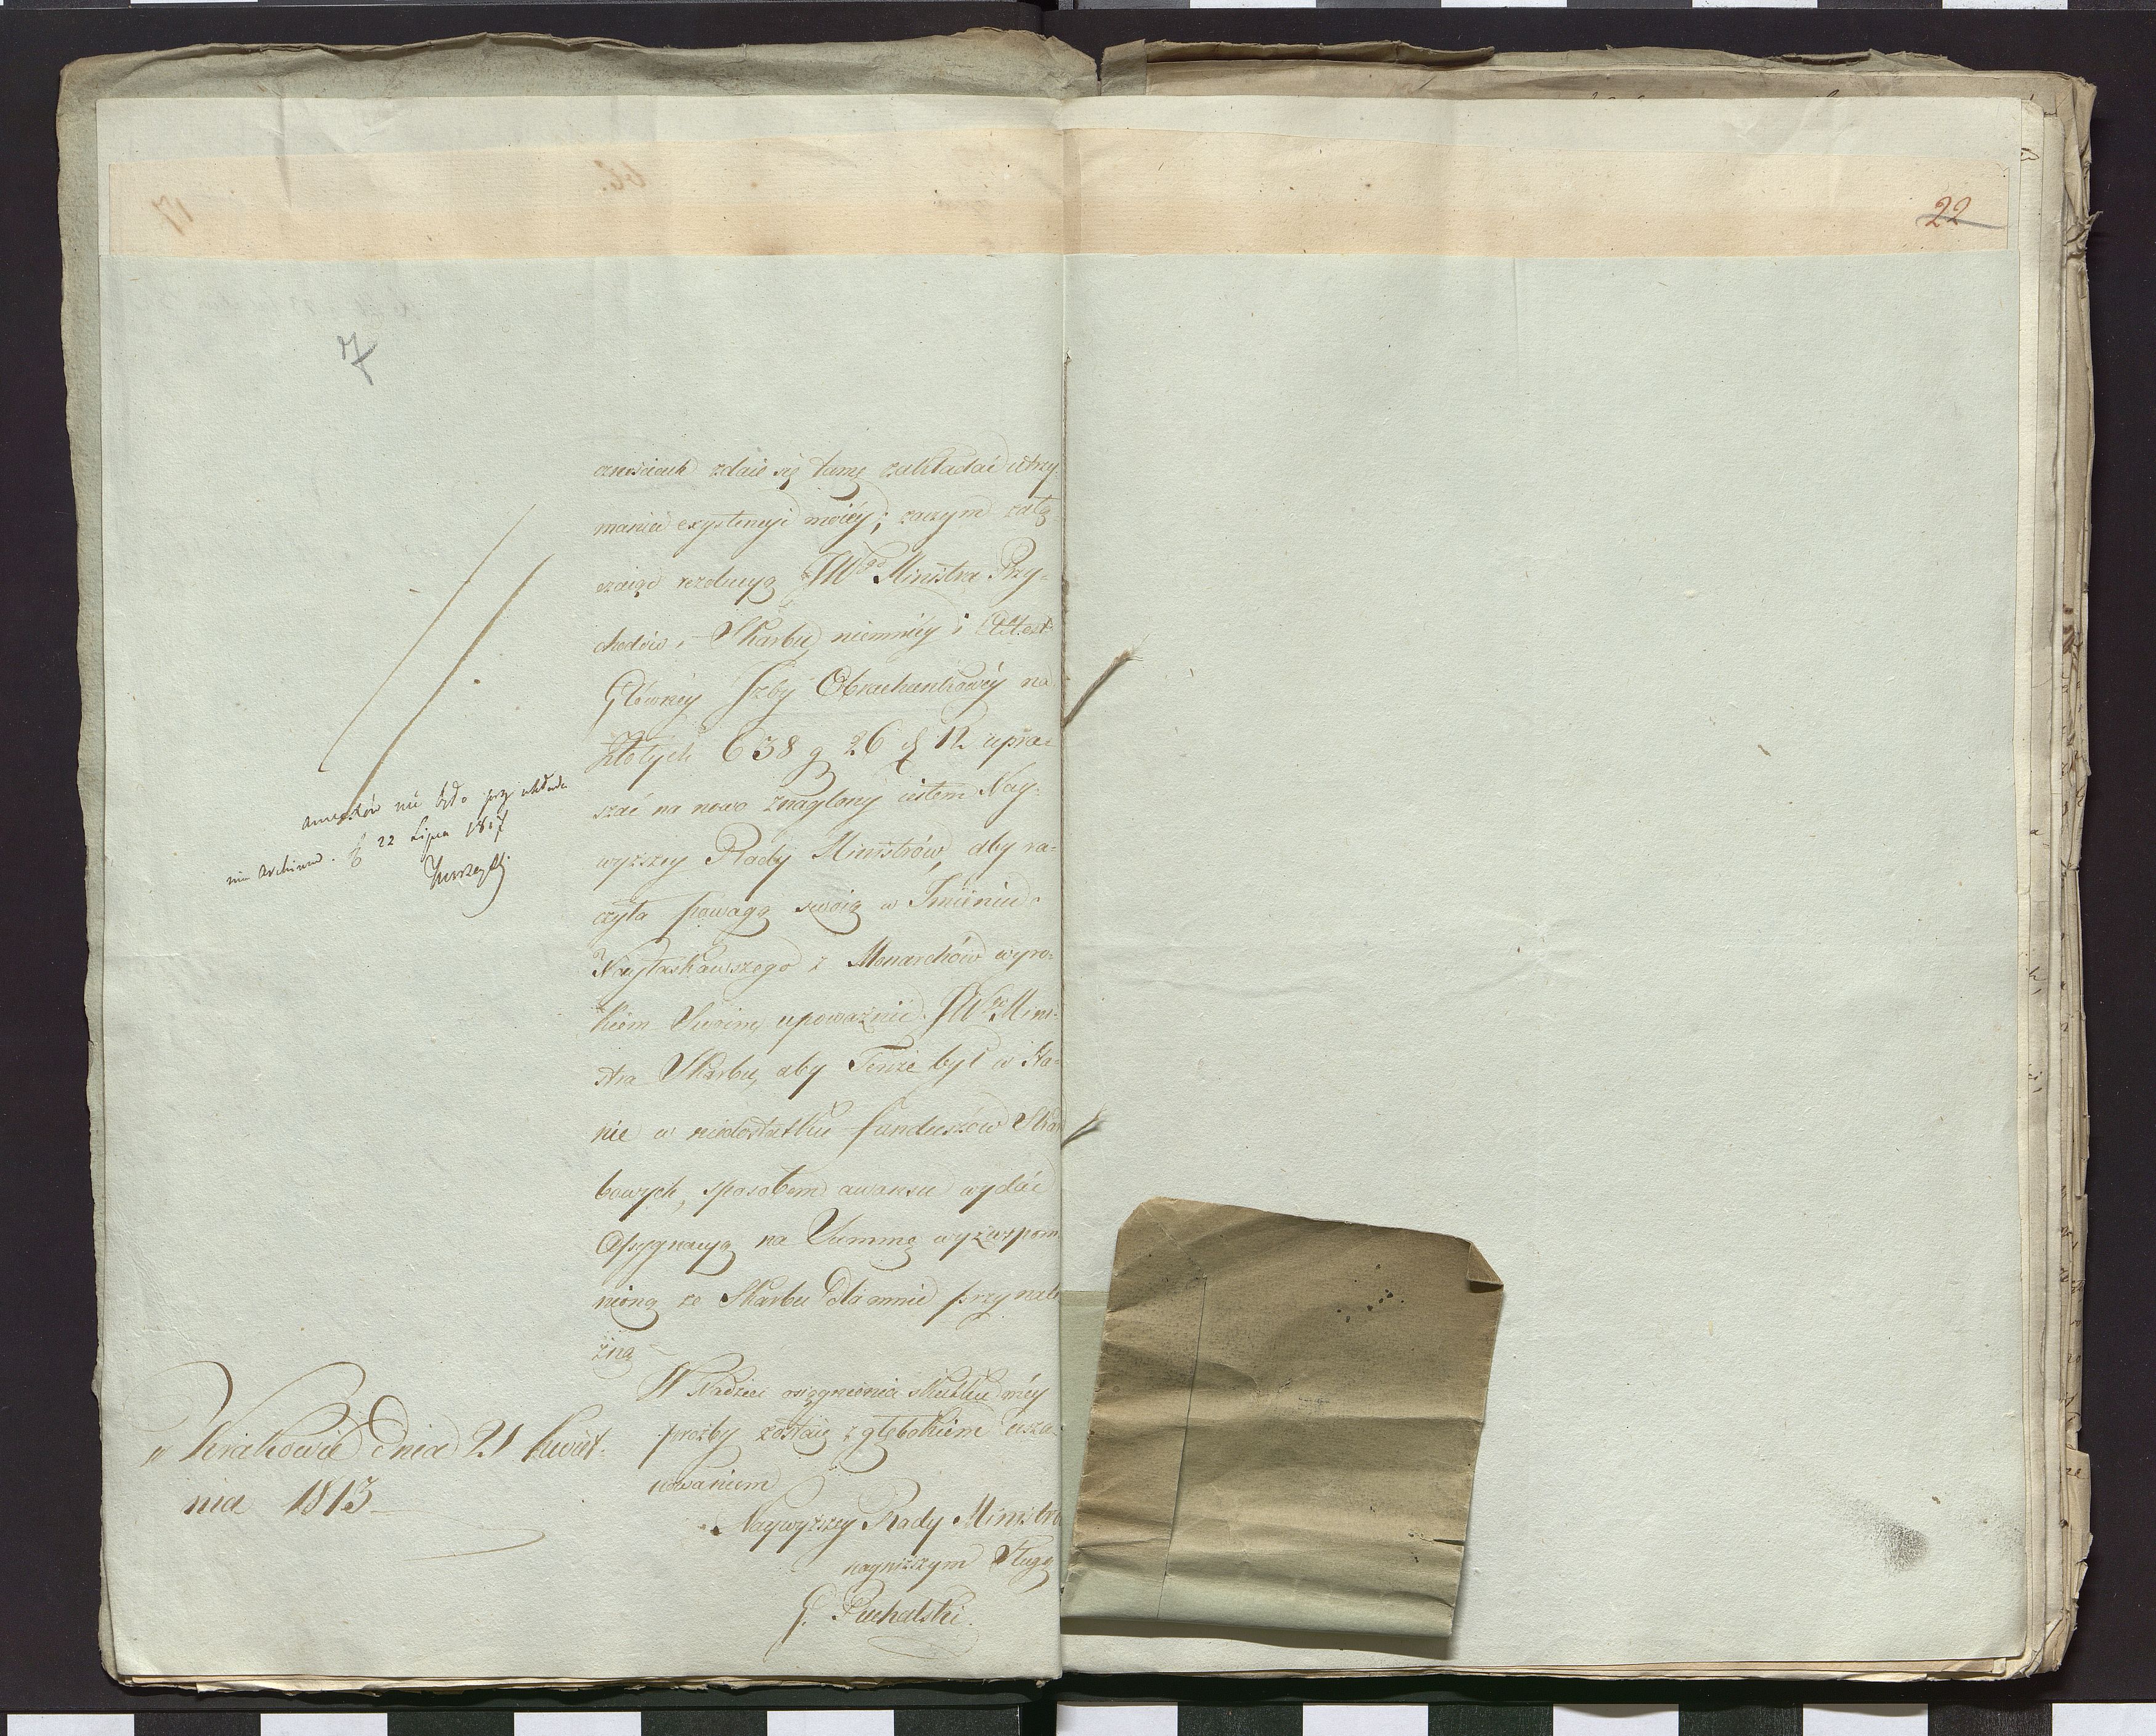 22
7
cznościach zdaie się tamę zakładać utrzy-
mania exystencyi moiéy; zaczym załą-
czaiąc rezolucyą JWgo Ministra Przy-
chodów i Skarbu, niemniéy i Attest
Główney Izby Obrachunkowéy na
Złotych 638 g 26 12 upra-
szać na nowo znaglony iestem Nay-
wyższey Rady Ministrów, aby ra-
czyła powagą swoią w Imieniu
Nayłaskawszego z Monarchów wyro-
kiem Swoim upoważnić JWgo Mini-
stra Skarbu, aby Tenże był w sta-
nie w niedostatku funduszów Skar
bowych, sposobem awansu wydać
Assygnacyą na Summę wyżwspom
nioną ze Skarbu dla mnie przynale
żną
W Nadziei osiągnienia skutku méy
prożby zostaię z głębokiem usza-
nowaniem
Naywyższey Rady Ministró
nayniższym Sługą
G. Puchalski.
w Krakowie dnia 21 Kwiet-
nia 1813
annexów nie było przy układa
niu Archiwum. 22 Lipca 1817